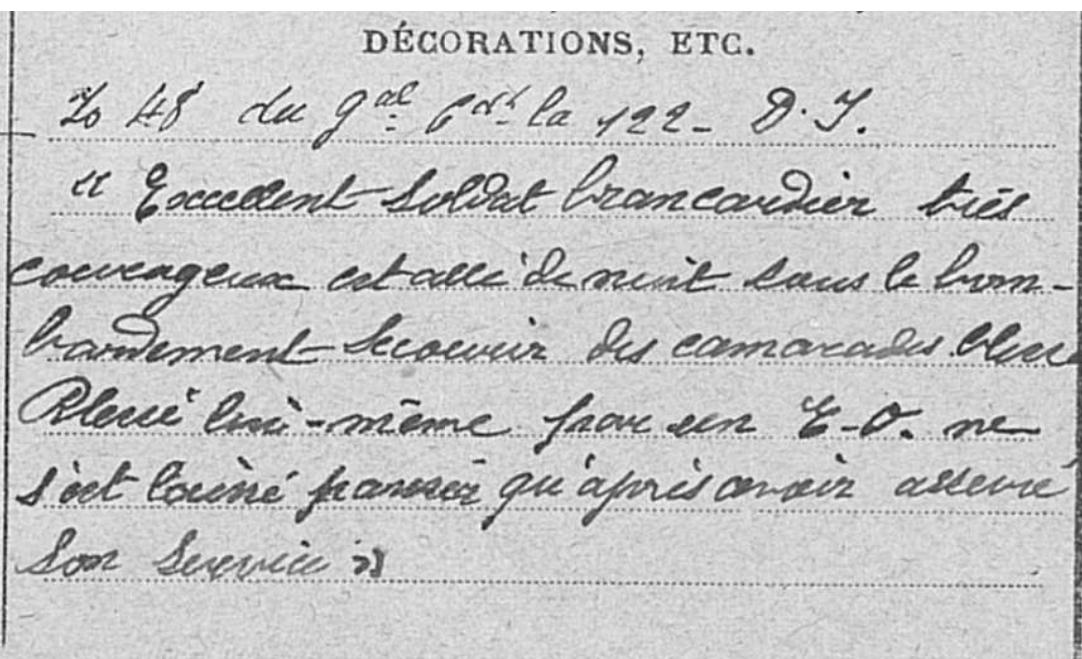 DÉCORATIONS, ETC.
No 48 du Gal Cdt la 122- D.I.
"Excellent soldat brancardier très
courageux est allé de nuit sous le bom-
bardement secourir des camarades blessé
Blessé lui-même par un E-O. ne
s'est laissé panser qu'après avoir assuré
son service"